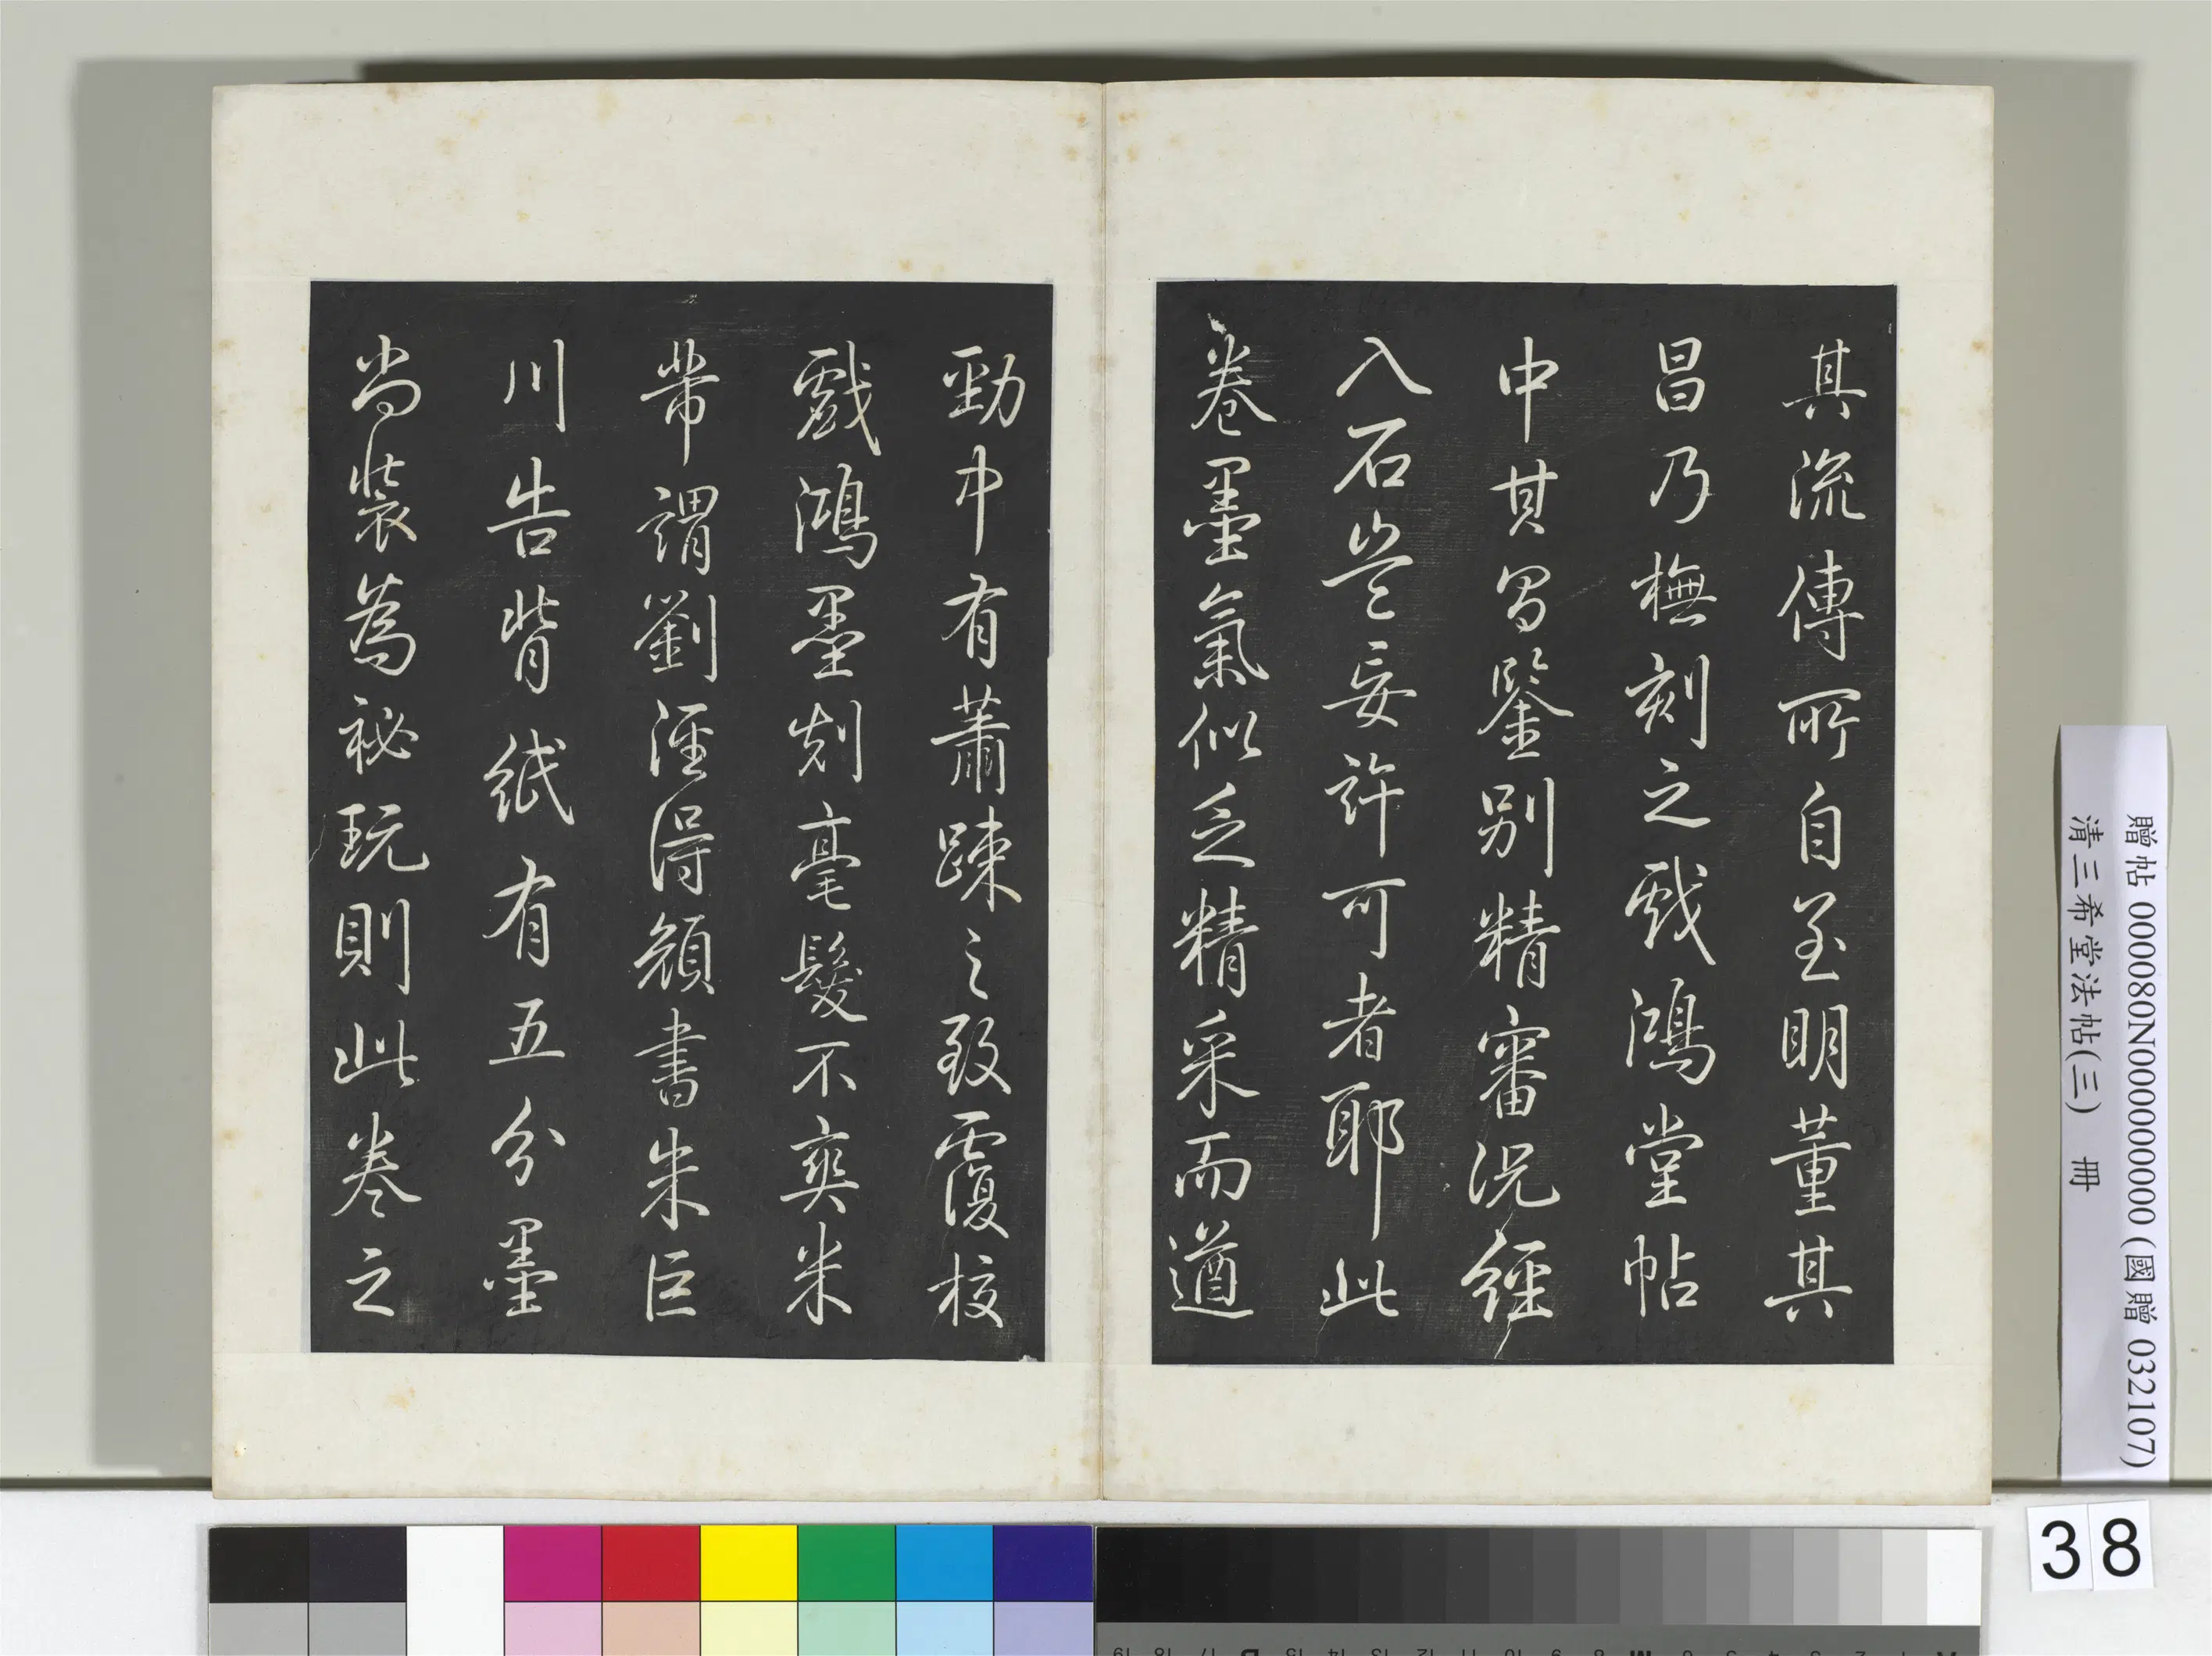 其流傳所自至明董其
昌乃橅刻之戲鴻堂帖
中其昌鑒別精審況經
入石豈妄許可者耶此
卷墨氣似乏精采而遒
勁中有蕭疎之致覆校
戲鴻墨刻毫髮不爽米
芾謂劉涇得顏書朱巨
川告背紙有五分墨
尚裝為祕玩則此卷之
贈帖 000080N000000000 (國贈 032107)
清三希堂法帖(三) 冊
38